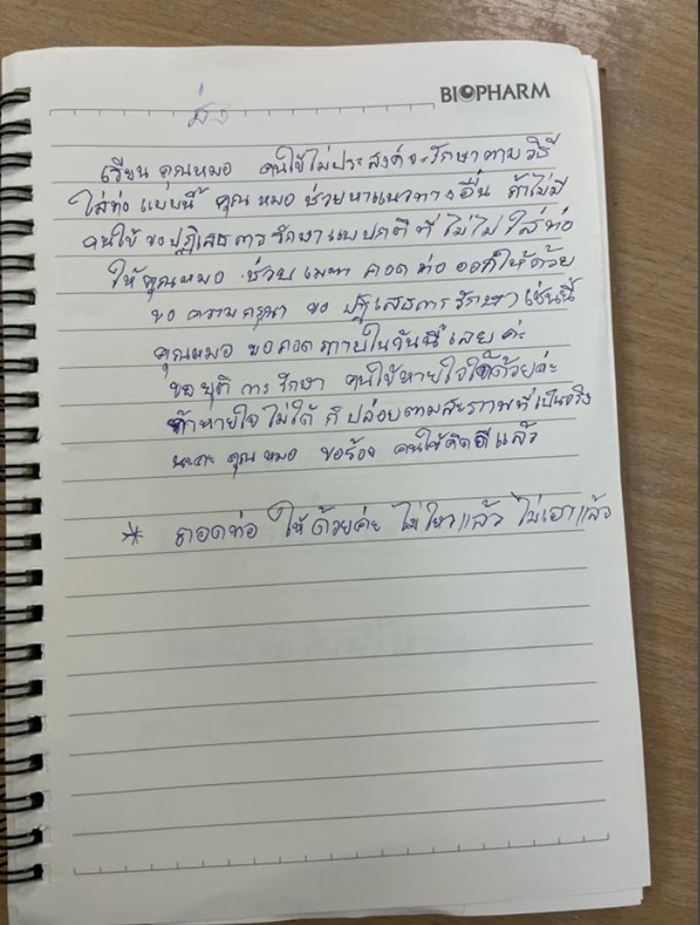 BIOPHARM
เรียน คุณหมอ คนไข้ไม่ประสงค์จะรักษาตามวิธี
ใส่ท่อ แบบนี้ คุณหมอ ช่วยหาแนวทางอื่น ถ้าไม่มี
คนไข้ ขอปฏิเสธการรักษาแบบ ที่ ไม่ ใส่ท่อ
ให้คุณหมอ ช่วย เมตตา ถอด ท่อ ออกให้ด้วย
ขอ ความกรุณา ขอ ปฏิเสธการรักษาเช่นนี้
คุณหมอ ขอถอดภายในวันนี้เลย ค่ะ
ขอยุติ การรักษา คนไข้หายใจได้ด้วยค่ะ
ถ้าหายใจไม่ได้ ก็ ปล่อยตามสภาพที่เป็นจริง
นะคะ คุณหมอ ขอร้อง คนไข้คิดดีแล้ว
* ถอดท่อ ให้ด้วยค่ะ ไม่ไหวแล้ว ไม่เอาแล้ว